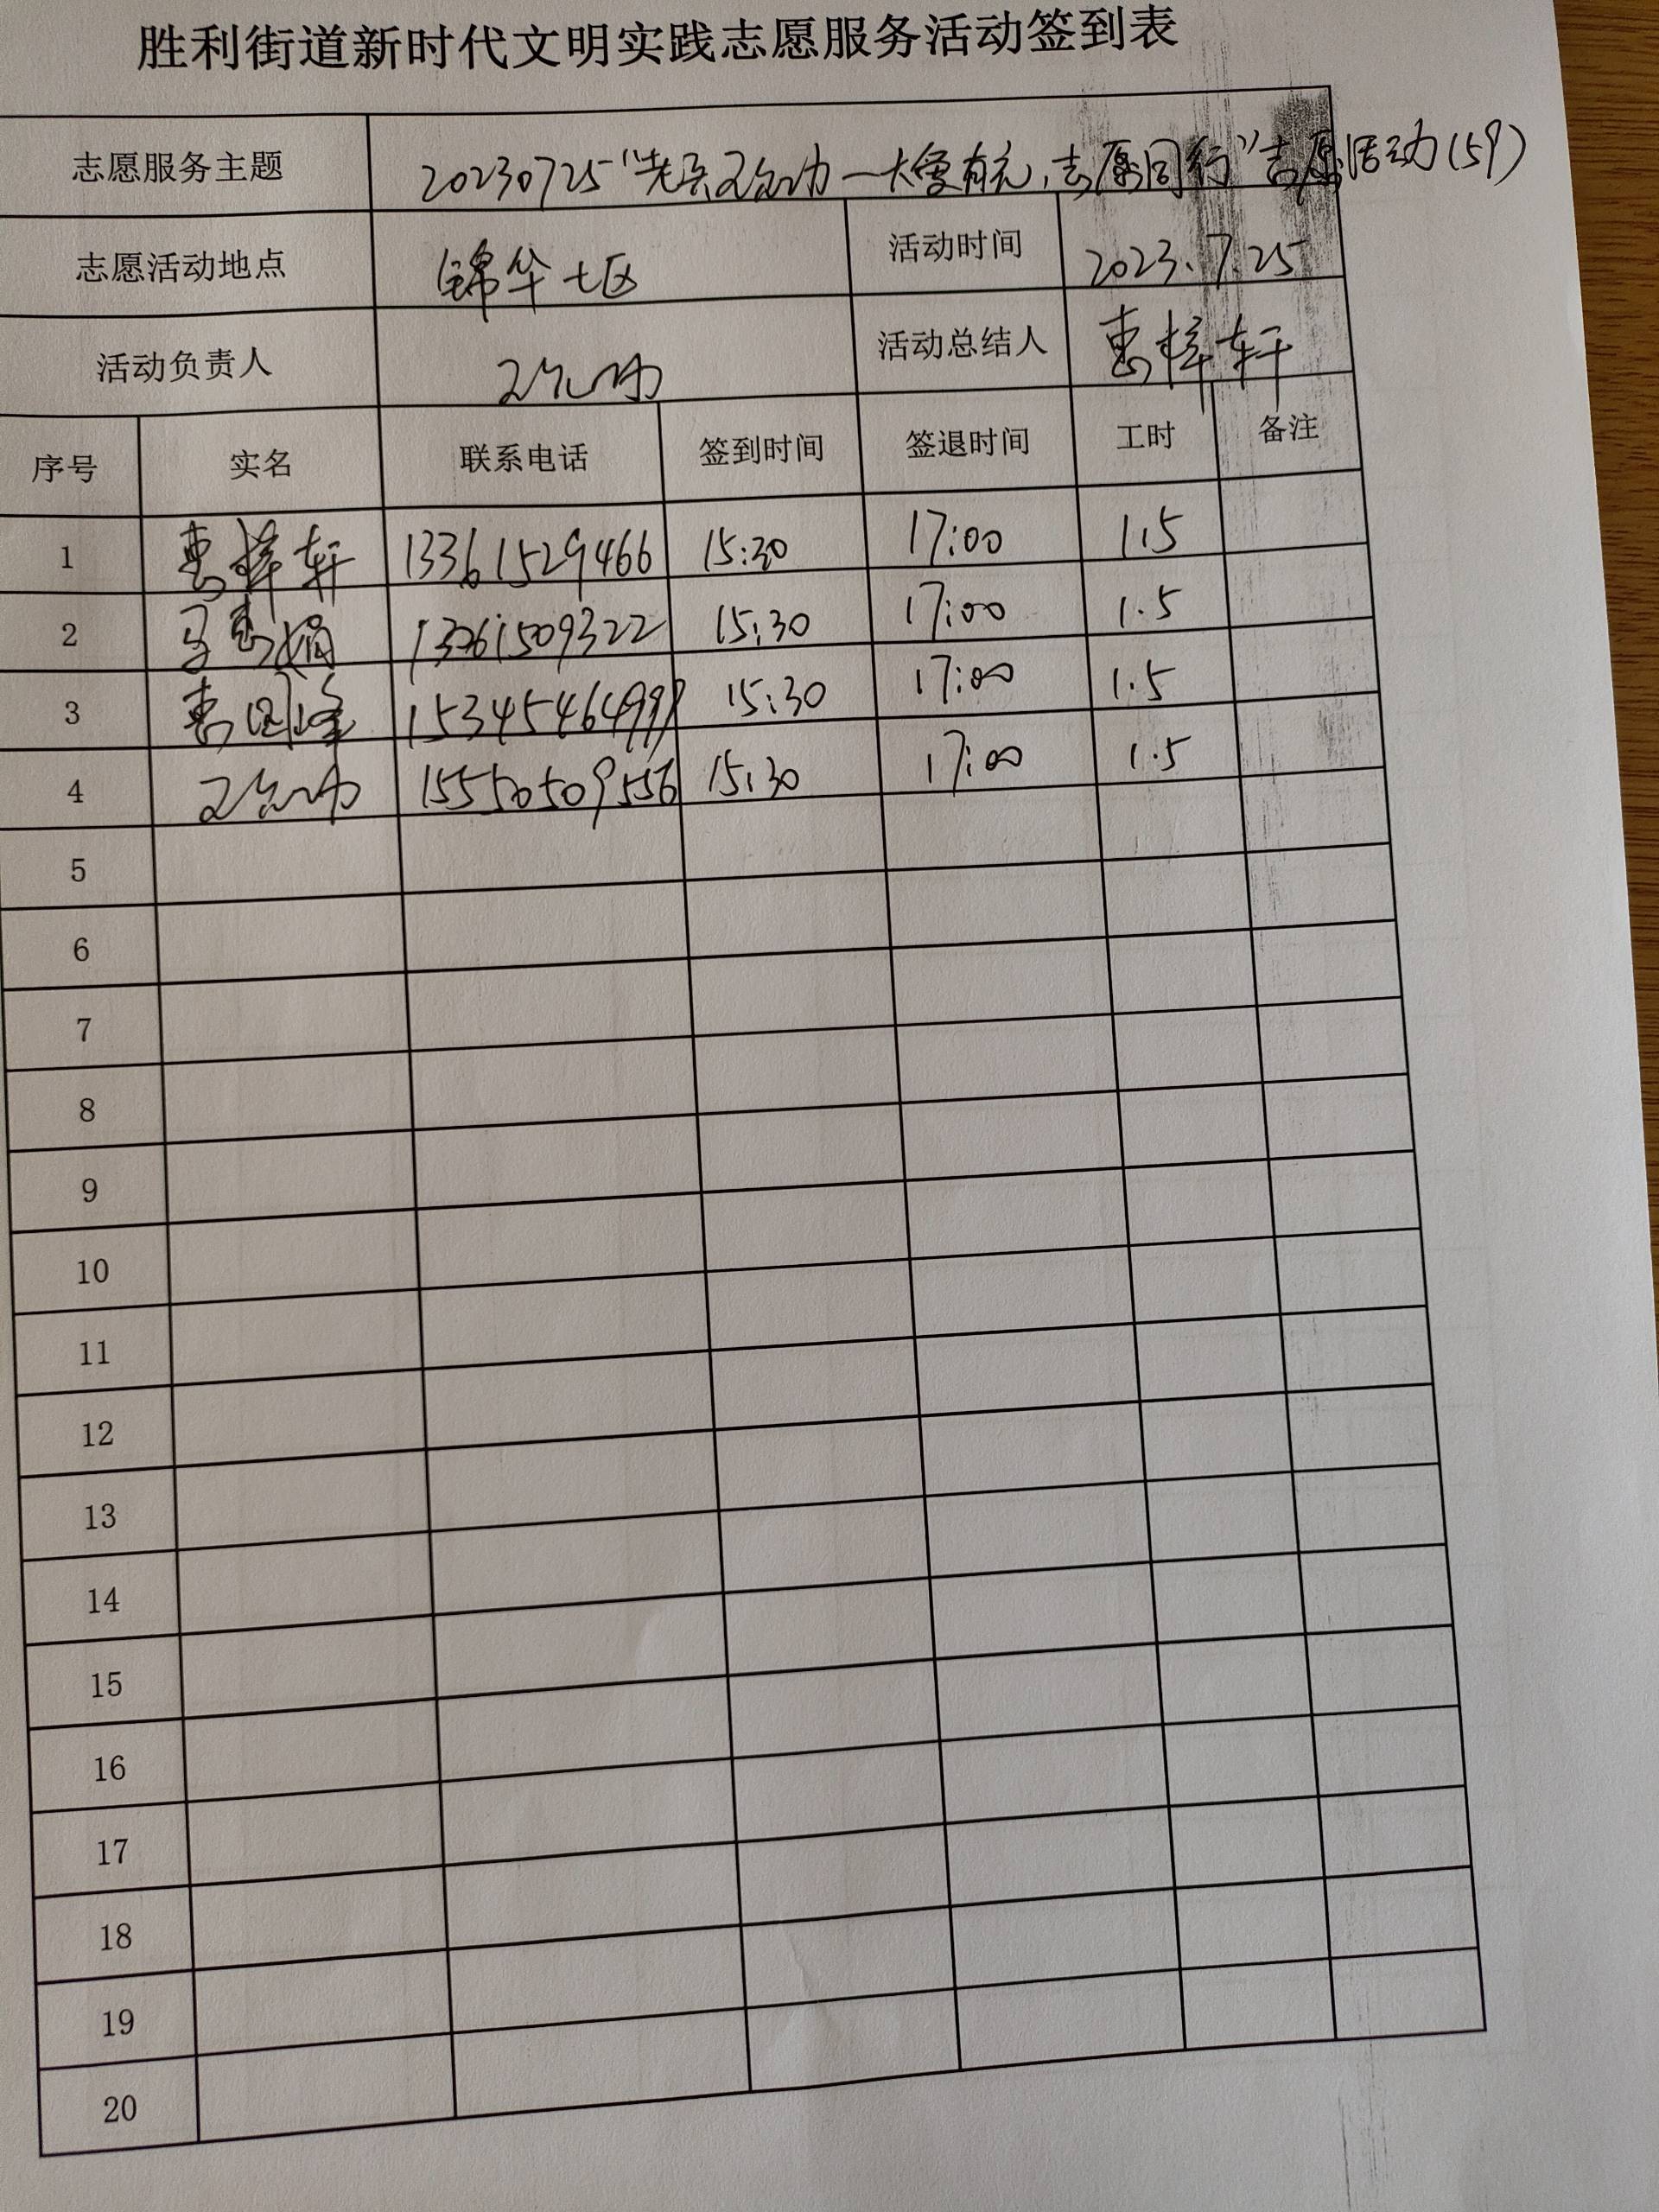 胜利街道新时代文明实践志愿服务活动签到表
志愿服务主题 20230725“ 大爱有元,志愿同行”志愿活动(59)
志愿活动地点 锦华七区 活动时间 2023.7.25
活动负责人 活动总结人 惠梓轩
序号 实名 联系电话 签到时间 签退时间 工时 备注
1 惠梓轩 13361529466 15:30 17:00 1.5
2 马惠娟 13361509322 15:30 17:00 1.5
3 惠国峰 15345464999 15:30 17:00 1.5
4 15550509556 15:30 17:00 1.5
5
6
7
8
9
10
11
12
13
14
15
16
17
18
19
20